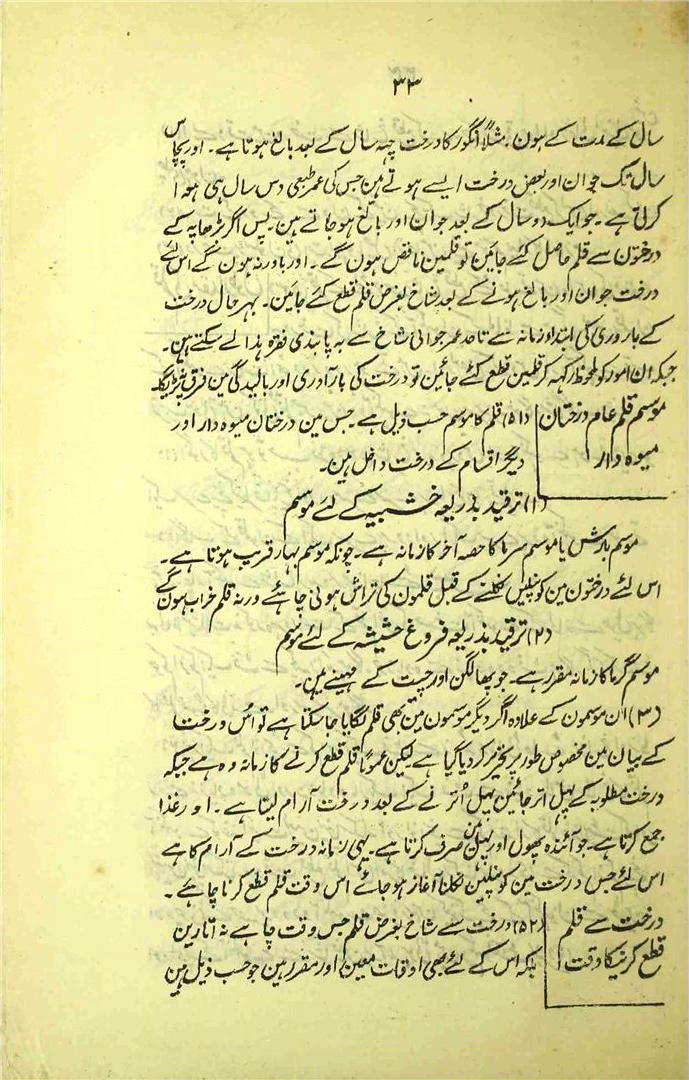 ۳۳
سال کے مدت کے ہون۔ مثلاً انگور کا درخت چہہ سال کے بعد بالغ ہوتا ہے۔ اور پچاس
سال تک جوان اور بعض درخت ایسے ہوتے ہین جس کی عمر طبعی دس سال ہی ہوا
کرتی ہے۔ جو ایک دو سال کے بعد جوان اور بالغ ہو جاتے ہین۔ پس اگر بڑھاپہ کے
درختون سے قلم حاصل کئے جائین تو قلمین ناقص ہون گے۔ اور باور نہ ہون گے اس لئے
درخت جوان اور بالغ ہونے کے بعد شاخ بغرض قلم قطع کئے جائین۔ بہر حال درخت
کے باروری کی ابتداء زمانہ سے تاحد عمر جوانی شاخ سے بہ پابندی فقرہ ہذا لے سکتے ہین۔
جبکہ ان امور کو ملحوظ رکہہ کر قلمین قطع کئے جائین تو درخت کی بارآوری اور بالیدگی مین فرق نہ پڑیگا۔
موسم قلم عام درختان
میوہ دار
(۵۱) قلم کا موسم حسب ذیل ہے۔ جس مین درختان میوہ دار اور
دیگر اقسام کے درخت داخل ہین۔
(۱) ترقید بذریعہ خشبیہ کے لئے موسم
موسم بارش یا موسم سرما کا حصہ آخر کا زمانہ ہے۔ چونکہ موسم بہار قریب ہوتا ہے۔
اس لئے درختون مین کونپلیں نکلنے کے قبل قلمون کی تراش ہونی چاہئے ورنہ قلم خراب ہون گے
(۲) ترقید بذریعہ فروغ حشیشہ کے لئے موسم
موسم گرما کا زمانہ مقرر ہے۔ جو پھالگن اور چیت کے مہینے ہین۔
(۳) ان موسمون کے علاوہ اگر دیگر موسمون مین بھی قلم لگایا جا سکتا ہے تو اُس درخت
کے بیان مین مخصوص طور پر تحریر کر دیا گیا ہے لیکن عموماً قلم قطع کرنے کا زمانہ وہ ہے جبکہ
درخت مطلوبہ کے پہل اتر جائین پہل اُترنے کے بعد درخت آرام لیتا ہے۔ اور غذا
جمع کرتا ہے۔ جو آئندہ پھول اور پہلون مین صرف کرتا ہے۔ یہی زمانہ درخت کے آرام کا ہے
اس لئے جس درخت مین کونپلین نکلن آغاز ہو جائے اس وقت قلم قطع کرنا چاہے۔
درخت سے قلم
قطع کرنیکا وقت
(۵۲) درخت سے شاخ بغرض قلم جس وقت چاہے نہ اتارین
بلکہ اس کے لئے بھی اوقات معین اور مقرر ہین جو حسب ذیل ہین